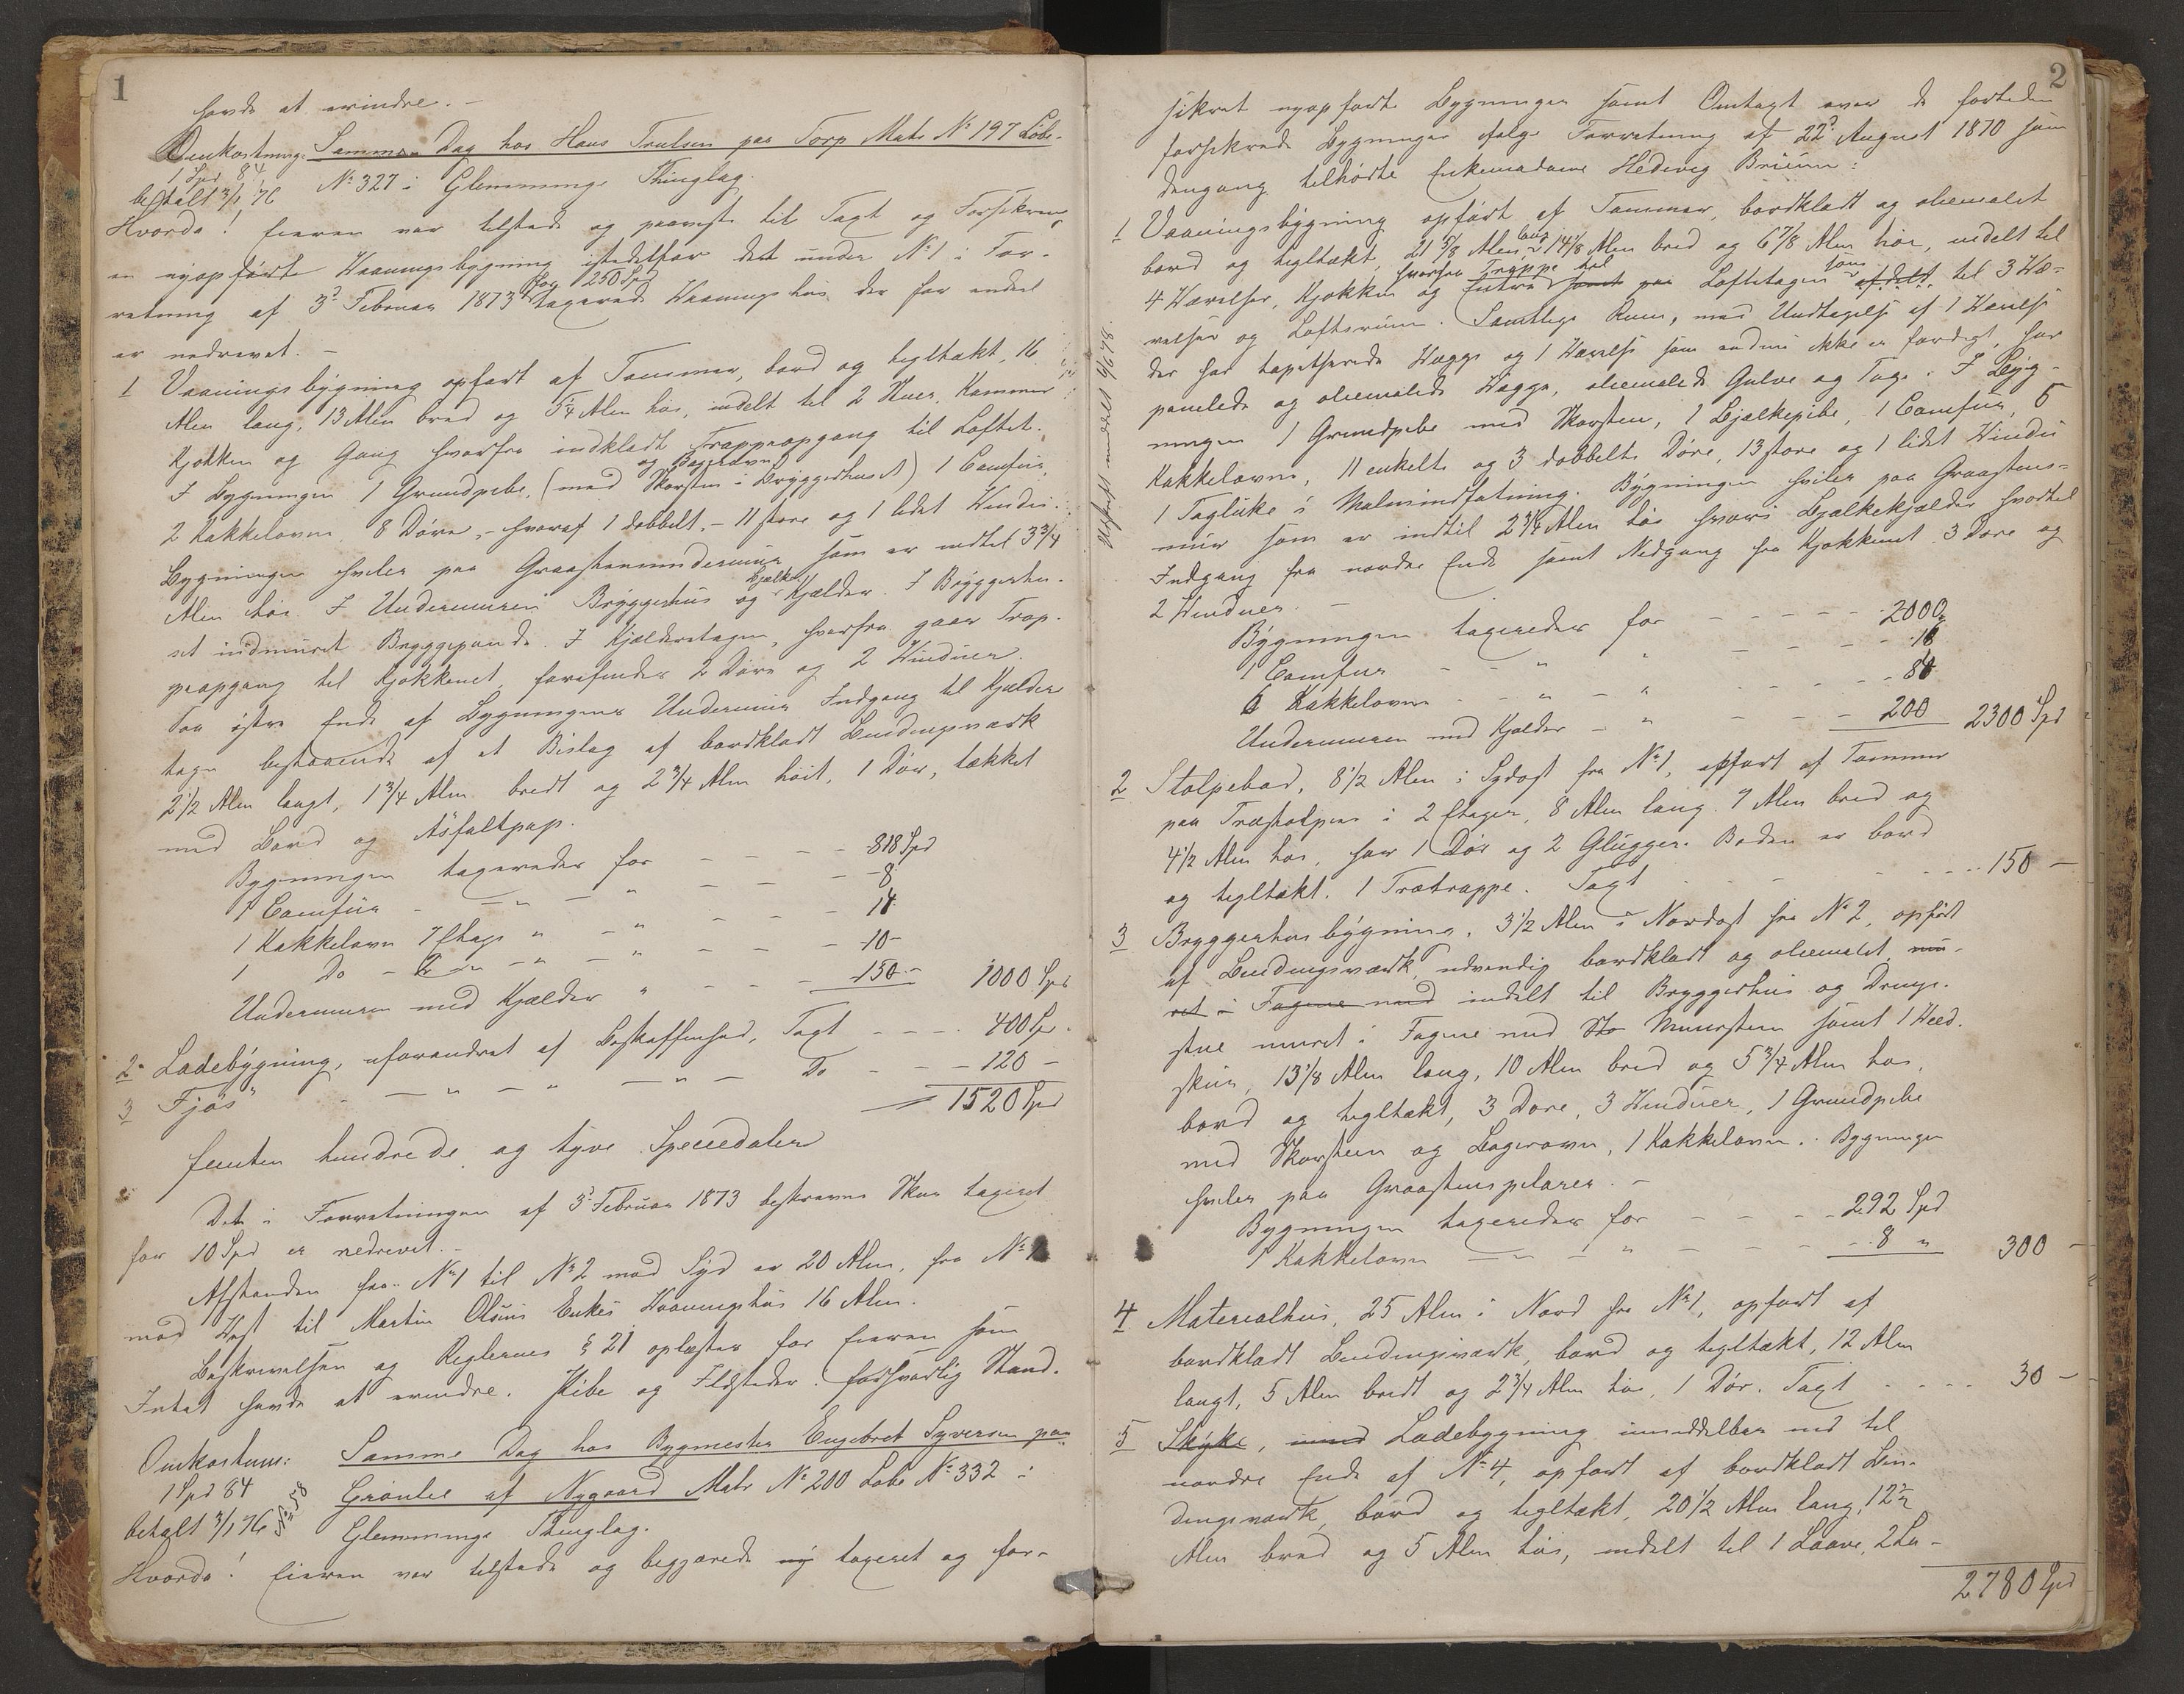 1
havde at erindre. –
Omkostning: Samme Dag hos Hans Trulsen paa Torp Matr No 197 Løbe-
1 Spd 84
betalt 3/1 76 No 327 i Glemminge Thinglag.
Hvorda! Eieren var tilstede og paaviste til Taxt og Forsikring
en nyopførte Vaaningsbygning istedetfor det under No 1 i For-
retning af 3d Februar 1873 for 250 Spd taxerede Vaaningshus der for endel
er nedrevet. –
1 Vaaningsbygning opført af Tømmer, bord og tegltækt, 16
Alen lang, 13 Alen bred og 5 1/4 Alen høi, indelt til 2 Stuer, Kammer
Kjøkken og Gang hvorfra indklædt Trappeopgang til Loftet.
og Bagerovn
I Bygningen 1 Grundpibe, (med Skorsten i Bryggerhuset) 1 Comfur,
2 Kakkelovne 8 Døre, – hvoraf 1 dobbelt. – 11 store og 1 lidet Vindu.
Bygningen hviler paa Graastensundermur som er indtil 3 3/4
Alen høi. I Undermuren Bryggerhus og Bjælke Kjælder. I Bryggerhu-
set indmuret Bryggepande. I Kjælderetagen, hvorfra gaar Trap-
peopgang til Kjøkkenet, forefindes 2 Døre og 2 Vinduer.
Paa østre Ende af Bygningens Undermur Indgang til Kjælder
tagen bestaaende af et Bislag af bordklædt Bindingsværk
2 1/2 Alen langt, 1 3/4 Alen bredt og 2 3/4 Alen høit, 1 Dør, tækket
med Bord og Asfaltpap.
Bygningen taxeredes for – – – – 818 Spd
1 Comfur – – " – " – – – 8
1 Kakkelovn 7 Etags " – " – – – 14
1 Do – 2 – " – " – " – – – 10 –
Undermuren med Kjælder " – – – 150 – 1000 Spd
2 Ladebygning, uforandret af Beskaffenhed, Taxt – – – 400 Sp.
3 Fjøs – " – " – " – Do – – – 120 –
1520 Spd
femten hundrede og tyve Speciedaler
Det i Forretningen af 3d Februar 1873 beskrevne Skur taxeret
for 10 Spd er nedrevet. –
Afstanden fra No 1 til No 2 mod Syd er 20 Alen, fra No 1
mod Vest til Martin Olsens Enkes Vaaningshus 16 Alen.
Beskrivelsen og Reglernes § 21 oplæstes for Eieren som
Intet havde at erindre. Pibe og Ildsteder i forsvarlig Stand.
Omkostning: Samme Dag hos Bygmester Engebret Syversen paa
1 Spd 84 Grønlie af Nygaard Matr No 200 Løbe No 332 i
betalt 3/1 76 Glemminge Thinglag.
Hvorda! Eieren var tilstede og begjærede ny taxeret og for-
2
sikret nyopførte Bygninger samt Omtaxt over de forteden
forsikrede Bygninger ifølge Forretning af 22d August 1870 som
dengang tilhørte Enkemadame Hedevig Bruun:
1 Vaaningsbygning opført af Tømmer, bordklædt og oliemalet
bord og tegltækt, 21 5/8 Alen lang 14 1/8 Alen bred og 6 7/8 Alen høi, indelt til
4 Værelser, Kjøkken og Entre hvorfra Trappe til samt paa Loftetagen som afdelt til 3 Væ-
relser og Loftsrum. Samtlige Rum, med Undtagelse af 1 Værelse
der har tapetserede Vægge og 1 Værelse som endnu ikke er færdigt, har
panelede og oliemalede Vægge, oliemalede Gulve og Tage. I Byg-
ningen 1 Grundpibe med Skorsten, 1 Bjælkepibe, 1 Comfur, 6
Kakkelovne, 11 enkelte og 3 dobbelte Døre, 13 store og 1 lidet Vindu
1 Tagluke i Malmindfatning. Bygningen hviler paa Graastens-
mur som er indtil 2 3/4 Alen høi hvori Bjælkekjælder hvortil
Indgang fra nordre Ende samt Nedgang fra Kjøkkenet. 3 Døre og
2 Vinduer. –
Bygningen taxeredes for – – – – 2000
1 Comfur – – " – " – – – 16
6 Kakkelovne – – " – " – – – 84
Undermuren med Kjælder – " – – – 200 2300 Spd
2 Stolpebod, 8 1/2 Alen i Sydost fra No 1, opført af Tømmer
paa Træstolper i 2 Etager, 8 Alen lang 7 Alen bred og
4 1/2 Alen høi, har 1 Dør og 2 Glugger. Boden er bord
og tegltækt. 1 Trætrappe. Taxt – – – – 150 –
3 Bryggerhusbygning, 3 1/2 Alen i Nordost fra No 2, opført
af Bindingsværk, udvendig bordklædt og oliemalet, mu-
ret i Fagene med indelt til Bryggerhus og Drenge-
stue muret i Fagene med Muursten samt 1 Ved-
skur, 13 1/8 Alen lang, 10 Alen bred og 5 3/4 Alen høi,
bord og tegltækt, 3 Døre, 3 Vinduer, 1 Grundpibe
med Skorsten og Bagerovn, 1 Kakkelovn. Bygningen
hviler paa Graastenspilarer. –
Bygningen taxeredes for – – – 292 Spd
1 Kakkelovn – " – " – – – 8 " 300 –
4 Materialhus, 25 Alen i Nord fra No 1, opført af
bordklædt Bindingsværk, bord og tegltækt, 12 Alen
langt, 5 Alen bredt og 2 3/4 Alen høi, 1 Dør. Taxt – – – – 30 –
5 Skykke, med Ladebygning umiddelbar ind til
nordre Ende af No 4, opført af bordklædt Bin-
dingsværk, bord og tegltækt, 20 1/2 Alen lang, 12 1/2
Alen bred og 5 Alen høi, indelt til 1 Laave, 2 La-
2780 Spd